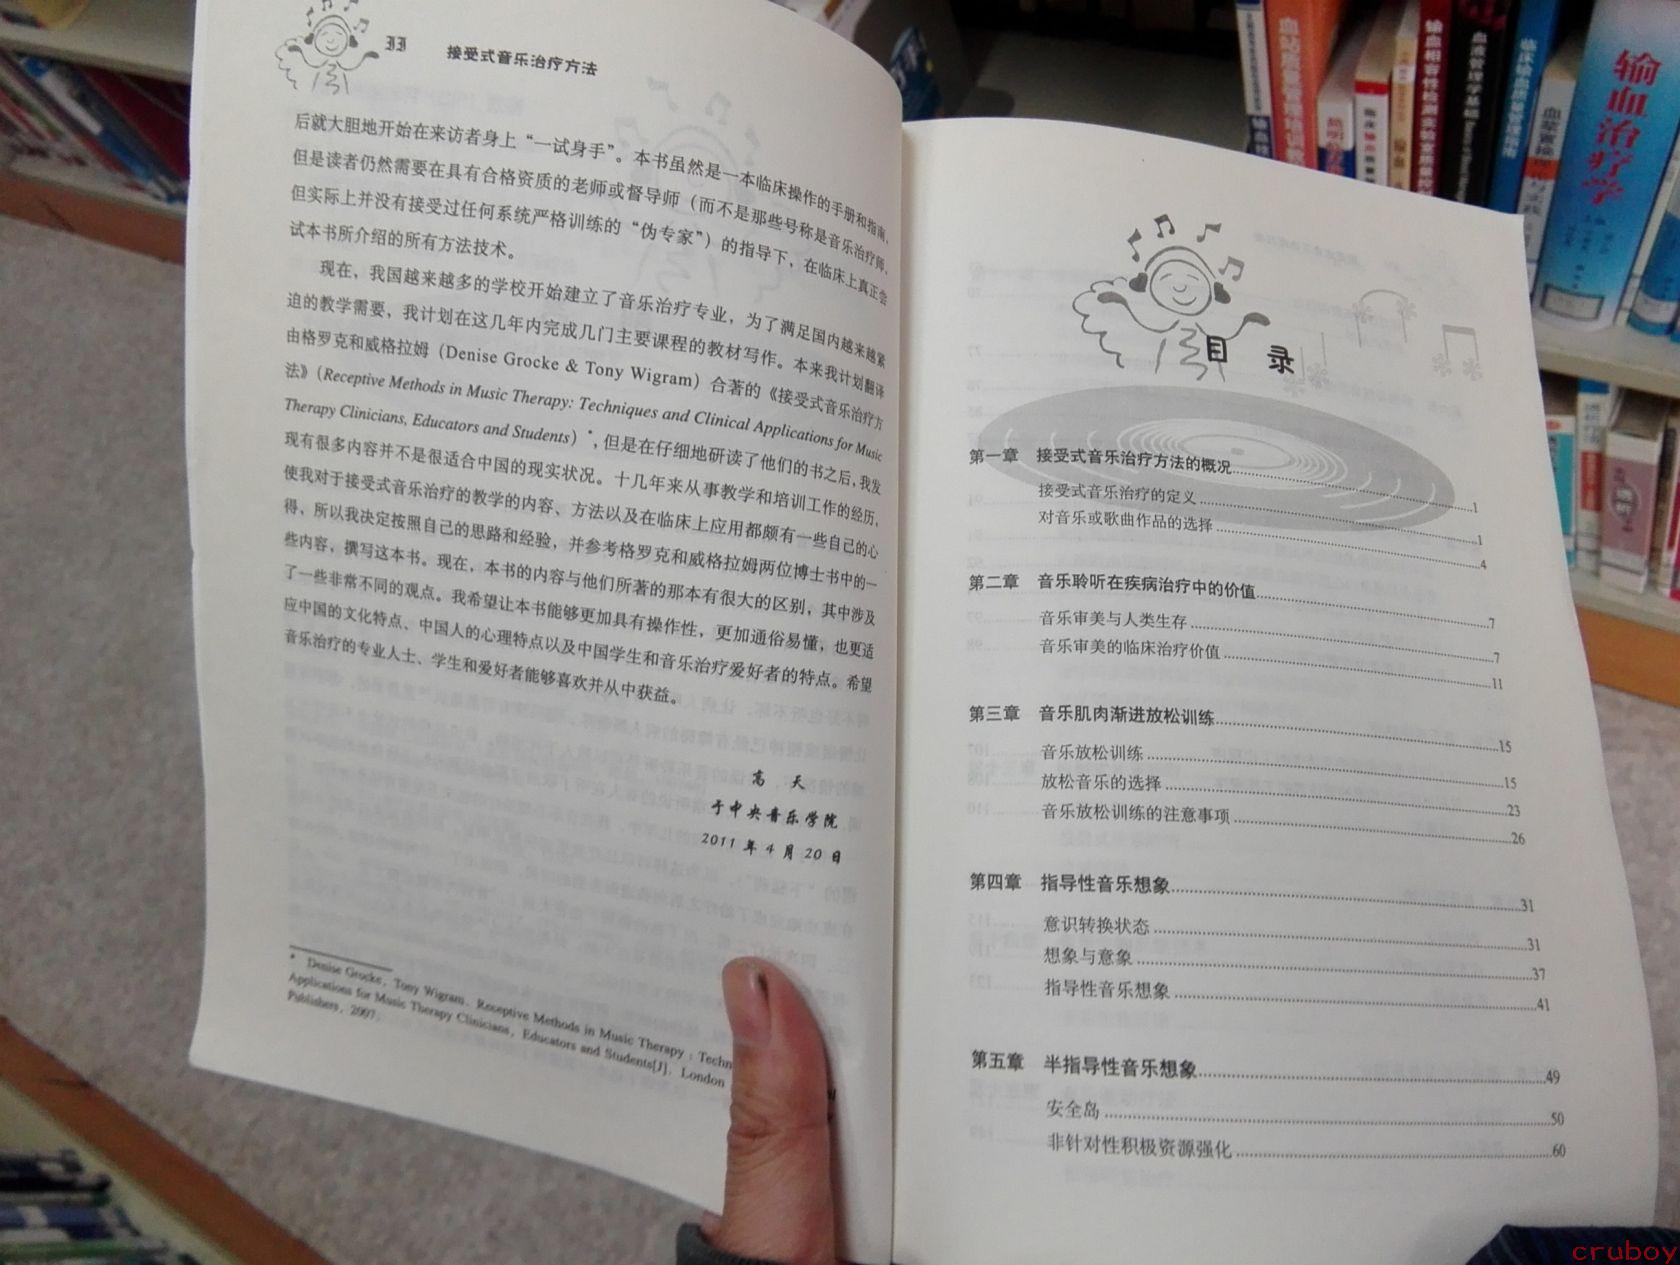 II 接受式音乐治疗方法
后就大胆地开始在来访者身上“一试身手”。本书虽然是一本临床操作的手册和指南，
但是读者仍然需要在具有合格资质的老师或督导师（而不是那些号称是音乐治疗师，
但实际上并没有接受过任何系统严格训练的“伪专家”）的指导下，在临床上真正尝
试本书所介绍的所有方法技术。
现在，我国越来越多的学校开始建立了音乐治疗专业，为了满足国内越来越紧
迫的教学需要，我计划在这几年内完成几门主要课程的教材写作。本来我计划翻译
由格罗克和威格拉姆（Denise Grocke & Tony Wigram）合著的《接受式音乐治疗方
法》（Receptive Methods in Music Therapy: Techniques and Clinical Applications for Music
Therapy Clinicians, Educators and Students）*，但是在仔细地研读了他们的书之后，我发
现有很多内容并不是很适合中国的现实状况。十几年来从事教学和培训工作的经历，
使我对于接受式音乐治疗的教学的内容、方法以及在临床上应用都颇有一些自己的心
得，所以我决定按照自己的思路和经验，并参考格罗克和威格拉姆两位博士书中的一
些内容，撰写这本书。现在，本书的内容与他们所著的那本有很大的区别，其中涉及
了一些非常不同的观点。我希望让本书能够更加具有操作性，更加通俗易懂，也更适
应中国的文化特点、中国人的心理特点以及中国学生和音乐治疗爱好者的特点。希望
音乐治疗的专业人士、学生和爱好者能够喜欢并从中获益。
高 天
于中央音乐学院
2011 年 4 月 20 日
* Denise Grocke, Tony Wigram. Receptive Methods in Music Therapy : Techn
Applications for Music Therapy Clinicians, Educators and Students[J]. London
Publishers, 2007.
目 录
第一章 接受式音乐治疗方法的概况 1
接受式音乐治疗的定义 1
对音乐或歌曲作品的选择 4
第二章 音乐聆听在疾病治疗中的价值 7
音乐审美与人类生存 7
音乐审美的临床治疗价值 11
第三章 音乐肌肉渐进放松训练 15
音乐放松训练 15
放松音乐的选择 23
音乐放松训练的注意事项 26
第四章 指导性音乐想象 31
意识转换状态 31
想象与意象 37
指导性音乐想象 41
第五章 半指导性音乐想象 49
安全岛 50
非针对性积极资源强化 60
输血治疗学
cruboy